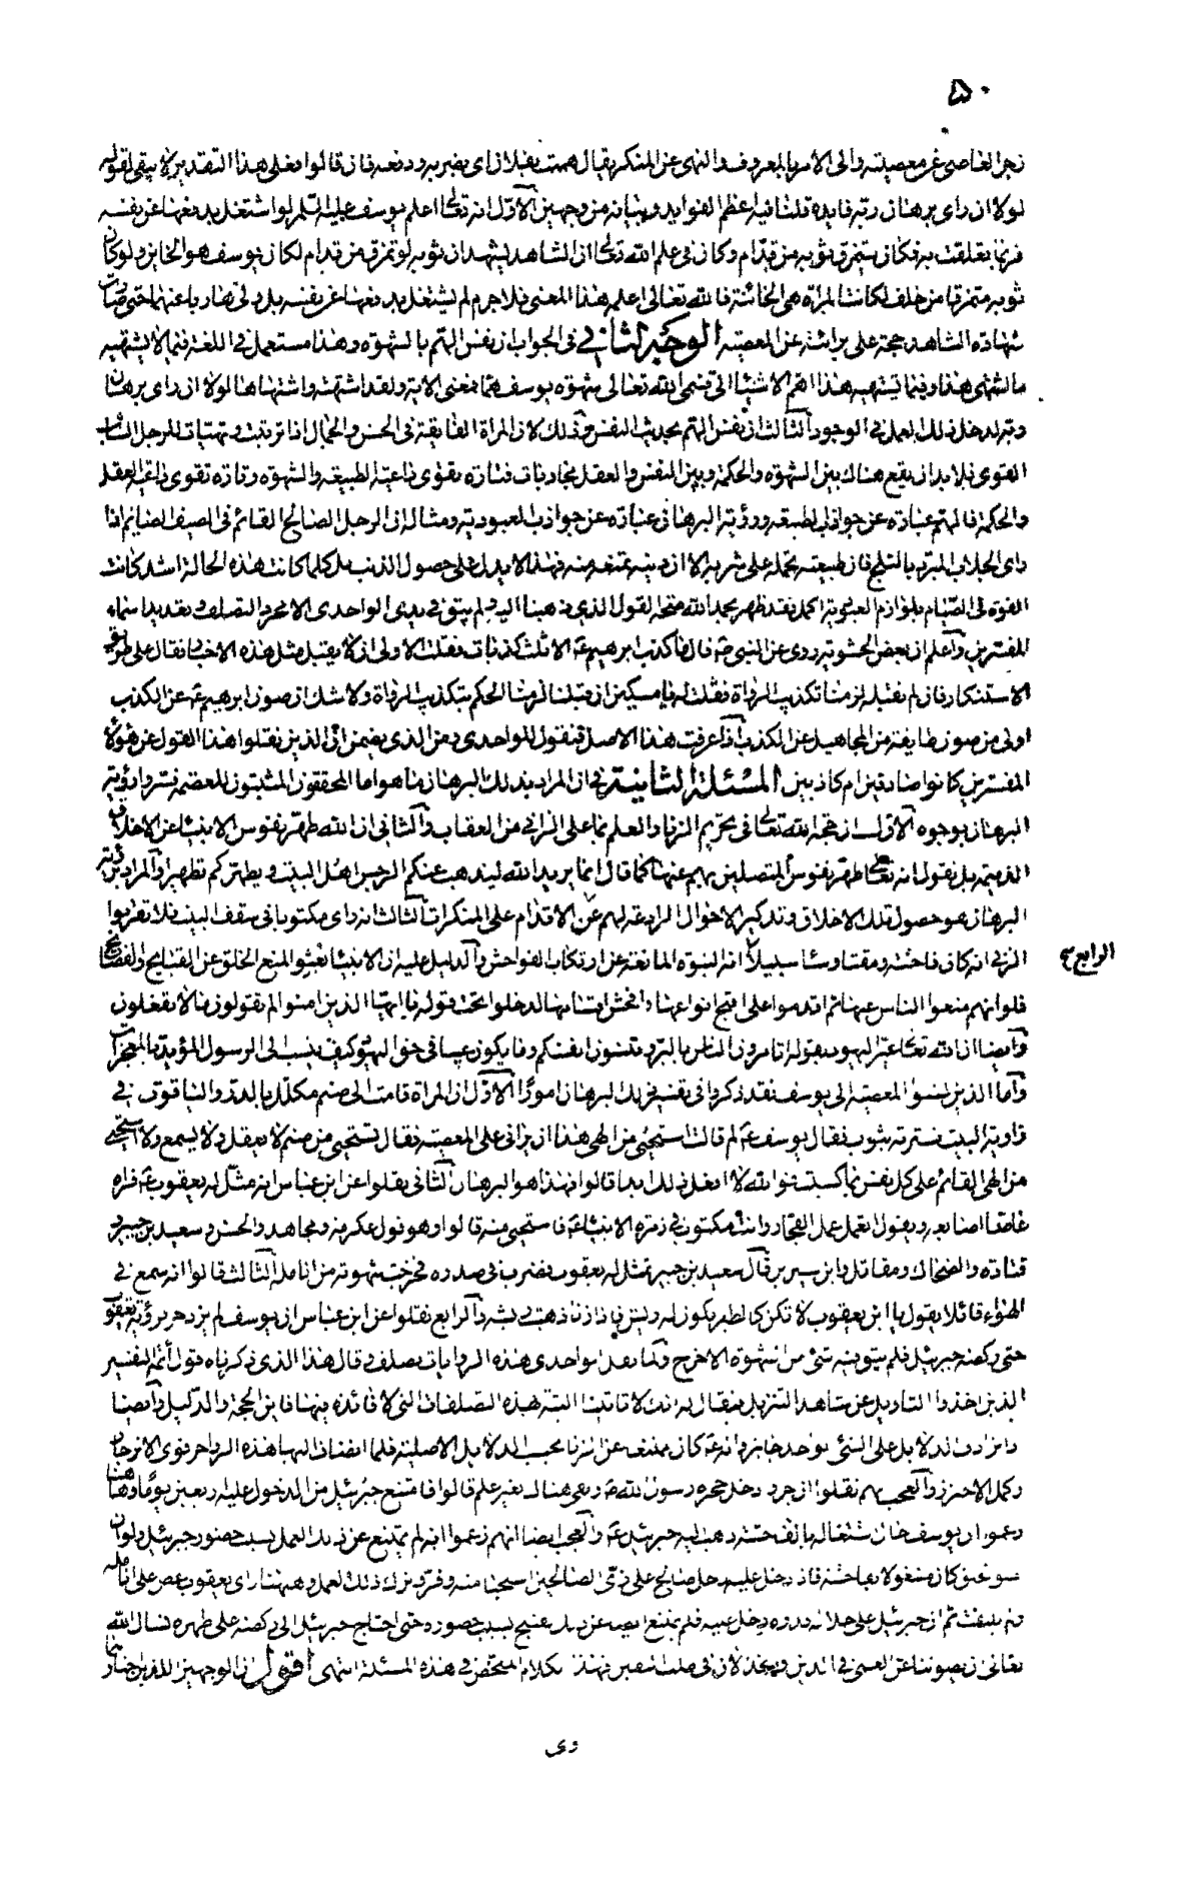 ٥٠
زجر العاصى عن معصيته والى الامر بالمعروف والنهى عن المنكر يقال هممت بفلان اى بضربه ودفعه فان قالوا فعلى هذا التقدير لا يبقى لقوله
لولا ان راى برهان ربه فايدة قلنا فيه اعظم الفوايد وبيانه من وجهين الاوّل انه تعالى اعلم يوسف عليه السلم لو اشتغل بدفعها عن نفسه
فربما تعلقت به فكان يتمزق ثوبه من قدّام وكان فى علم الله تعالى ان الشاهد يشهد ان ثوبه لو تمزق من قدام لكان يوسف هو الخاين ولو كان
ثوبه متمزقا من خلف لكانت المراة هى الخائنة فالله تعالى اعلمه هذا المعنى فلا جرم لم يشتغل بدفعها عن نفسه بل ولى هاربا عنها حتى صارت
شهادة الشاهد حجة على برائته عن المعصيته الوجه الثانى فى الجواب ان يفسر الهم بالشهوة وهذا مستعمل فى اللغة فيما لا يشتهيه
ما اشتهى هذا وفيما يشتهيه هذا اهم الاشيئا الى فسمى الله تعالى شهوة يوسف هما فمعنى الاية ولقد اشتهته واشتهاها لولا ان راى برهان
ربه لدخل ذلك العمل فى الوجود الثالث ان يفسر الهم بحديث النفس وذلك لان المراة الفايقة فى الحسن والجمال اذا تزينت وتهيات للرجل الشاب
القوى فلا بد ان يقع هناك بين الشهوة والحكمة وبين النفس والعقل مجاذبات فتارة يقوى داعية الطبيعة والشهوة وتارة تقوى داعية العقل
والحكمة فالهم عبارة عن جواذب الطبيعة ورؤية البرهان عبارة عن جواذب العبودية ومثاله ان الرجل الصالح القائم فى الصيف الصايم اذا
راى الجلاب المبرد بالثلج فان طبيعته يحمله على شربه الا ان دينه يمنعه منه فهذا لا يدل على حصول الذنب بل كلما كانت هذه الحالة اشد كانت
القوة فى القيام بلوازم العبودية اكمل فقد ظهر بحمد الله صحة القول الذى ذهبنا اليه ولم يبق فى يدى الواحدى الا مجرد التصلف وتعديد اسماء
المفسرين واعلم ان بعض الحشوية روى عن النبى ص قال ما كذب ابرهيم ع الا ثلث كذبات فقلت الاولى ان لا يقبل مثل هذه الاخبار فقال على طريق
الاستنكار فان لم نقبله لزمنا تكذيب الرواة فقلت له يا مسكين ان قبلنا لزمنا الحكم بتكذيب الرواة ولا شك ان صون ابرهيم ع عن الكذب
اولى من صون طايفة من المجاهيل عن الكذب اذا عرفت هذا الاصل فنقول للواحدى ومن الذى يضمن ان الذين نقلوا هذا القول عن هولاء
المفسرين كانوا صادقين ام كاذبين المسئلة الثانية فى ان المراد بذلك البرهان ما هو اما المحققون المثبتون للعصمة فسروا رؤية
البرهان بوجوه الاول انه حجة الله تعالى فى تحريم الزنا والعلم بما على الزانى من العقاب والثانى ان الله طهر نفوس الانبيا عن الاخلاق
الذميمة بل نقول انه تعالى طهر نفوس المتصلين بهم عنها كما قال انما يريد الله ليذهب عنكم الرجس اهل البيت ويطهركم تطهيرا والمراد برؤية
البرهان هو حصول تلك الاخلاق وتذكير الاحوال الرادعة لهم عن الاقدام على المنكرات الثالث انه راى مكتوبا فى سقف البيت فلا تقربوا
الزنى انه كان فاحشة ومقتا وساء سبيلا انه النبوة المانعة عن ارتكاب الفواحش والدليل عليه ان الانبيا بعثوا لمنع الخلق عن القبايح والفضايح
الرابع ص
فلو انهم منعوا الناس عنها ثم اقدموا على اقبح انواعها وافحش اقسامها لدخلوا تحت قوله يا ايها الذين امنوا لم تقولون ما لا تفعلون
وايضا ان الله تعالى عير اليهود بقوله تامرون الناس بالبر وتنسون انفسكم وما يكون عيبا فى حق اليهود كيف ينسب الى الرسول المؤيد بالمعجزات
واما الذين نسبوا المعصية الى يوسف فقد ذكروا فى تفسير ذلك البرهان امورًا الاوّل ان المراة قامت الى صنم مكلل بالدر والياقوت فى
زاوية البيت فسترته بثوب فقال يوسف ع لم قالت استحيى من الهى هذا ان يرانى على المعصية فقال تستحيى من صنم لا يعقل ولا يسمع ولا استحيى
من الهى القائم على كل نفس بما كسبت فوالله لا افعل ذلك ابدا قالوا فهذا هو البرهان الثانى نقلوا عن ابن عباس انه مثل له يعقوب ع فراه
عاضا اصابعه ويقول اتعمل عمل الفجار وانت مكتوب فى زمرة الانبياء فاستحيى منه قالوا وهو قول عكرمة ومجاهد والحسن وسعيد بن جبير و
قتادة والضحاك ومقاتل وابن سيرين قال سعيد بن جبير تمثل له يعقوب فضرب فى صدره فخرجت شهوته من انامله الثالث قالوا انه سمع فى
الهواء قائلا يقول يا ابن يعقوب لا تكن كالطير يكون له ريش فاذا زنا ذهب ريشه والرابع نقلوا عن ابن عباس ان يوسف لم يزدجر برؤية يعقوب
حتى ركضه جبرئيل فلم يبق فيه شئ من الشهوة الا خرج ولما نقل الواحدى هذه الروايات تصلف وقال هذا الذى ذكرناه قول ائمة التفسير
الذين اخذوا التاويل عن شاهد التنزيل فيقال له انك لا تاتينا البتة الا بهذه التصلفات التى لا فائدة فيها فاين الحجة والدليل وايضا
فان ترادف الدلايل على الشئ الواحد جايز وانه ع كان ممتنعا عن الزنا بحسب الدلايل الاصلية فلما انضاف اليها هذه الزواجر قوى الانزجار
وكمل الاحتراز والعجب انهم نقلوا ان جروا دخل حجرة رسول الله ص وبقى هناك بغير علم قالوا فامتنع جبرئيل من الدخول عليه اربعين يومًا وههنا
زعموا ان يوسف حال اشتغاله بالفاحشة ذهب اليه جبرئيل ع والعجب ايضا انهم زعموا انه لم يمتنع عن ذلك العمل بسبب حضور جبرئيل ولو ان
كان مشغولا بفاحشة فاذا دخل عليه رجل صالح على زى الصالحين استحيا منه وفر وترك ذلك العمل وههنا راى يعقوب عض على انامله
فلم يلتفت ثم ان جبرئيل على جلالة قدره دخل عليه فلم يمتنع ايضا عن ذلك القبيح بسبب حضوره حتى احتاج جبرئيل الى ركضه على ظهره نسال الله
تعالى ان يصوننا عن العمى فى الدين فهذا كلام الملخص فى هذه المسئلة انتهى اقول ان الوجهين اللذين